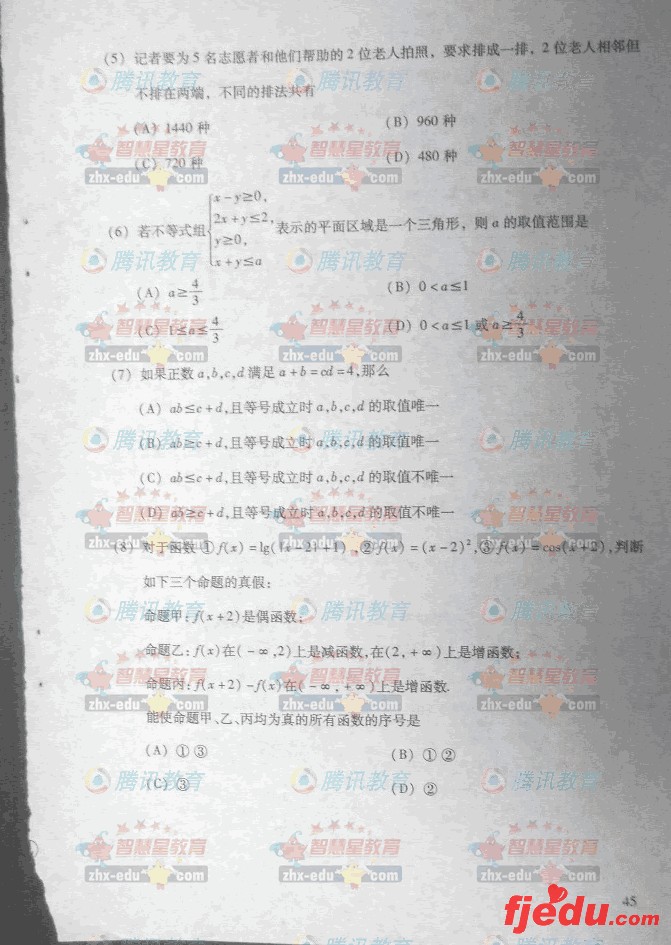 (5) 记者要为5名志愿者和他们帮助的2位老人拍照，要求排成一排，2位老人相邻但
不排在两端，不同的排法共有
(A) 1440 种
(B) 960 种
(C) 720 种
(D) 480 种
(6) 若不等式组{x-y≥0, 2x+y≤2, y≥0, x+y≤a 表示的平面区域是一个三角形，则 a 的取值范围是
(A) a≥4/3
(B) 0<a≤1
(C) 1≤a≤4/3
(D) 0<a≤1 或 a≥4/3
(7) 如果正数 a,b,c,d 满足 a+b=cd=4,那么
(A) ab≤c+d,且等号成立时 a,b,c,d 的取值唯一
(B) ab≥c+d,且等号成立时 a,b,c,d 的取值唯一
(C) ab≤c+d,且等号成立时 a,b,c,d 的取值不唯一
(D) ab≥c+d,且等号成立时 a,b,c,d 的取值不唯一
(8) 对于函数 ① f(x)=lg(|x-2|+1),② f(x)=(x-2)²,③ f(x)=cos(x+2),判断
如下三个命题的真假：
命题甲：f(x+2)是偶函数；
命题乙：f(x)在(-∞,2)上是减函数,在(2,+∞)上是增函数；
命题丙：f(x+2)-f(x)在(-∞,+∞)上是增函数.
能使命题甲、乙、丙均为真的所有函数的序号是
(A) ①③
(B) ①②
(C) ③
(D) ②
45
腾讯教育
智慧星教育
zhx-edu.com
fjedu.com